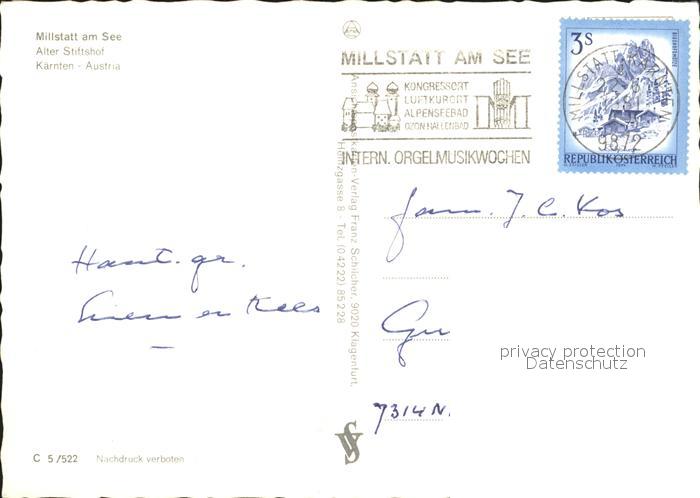 Millstatt am See
Alter Stiftshof
Kärnten - Austria
MILLSTATT AM SEE
KONGRESSORT
LUFTKURORT
ALPENSEEBAD
OZON-HALLENBAD
INTERN. ORGELMUSIKWOCHEN
3S
REPUBLIK ÖSTERREICH
9872
Ansichtskarten-Verlag Franz Schilcher, 9020 Klagenfurt,
Hönzgasse 8 - Tel. (04222) 85228
Fam. J. C. Kos
Hart. gr.
en Kees
7314 N.
privacy protection
Datenschutz
C 5/522 Nachdruck verboten